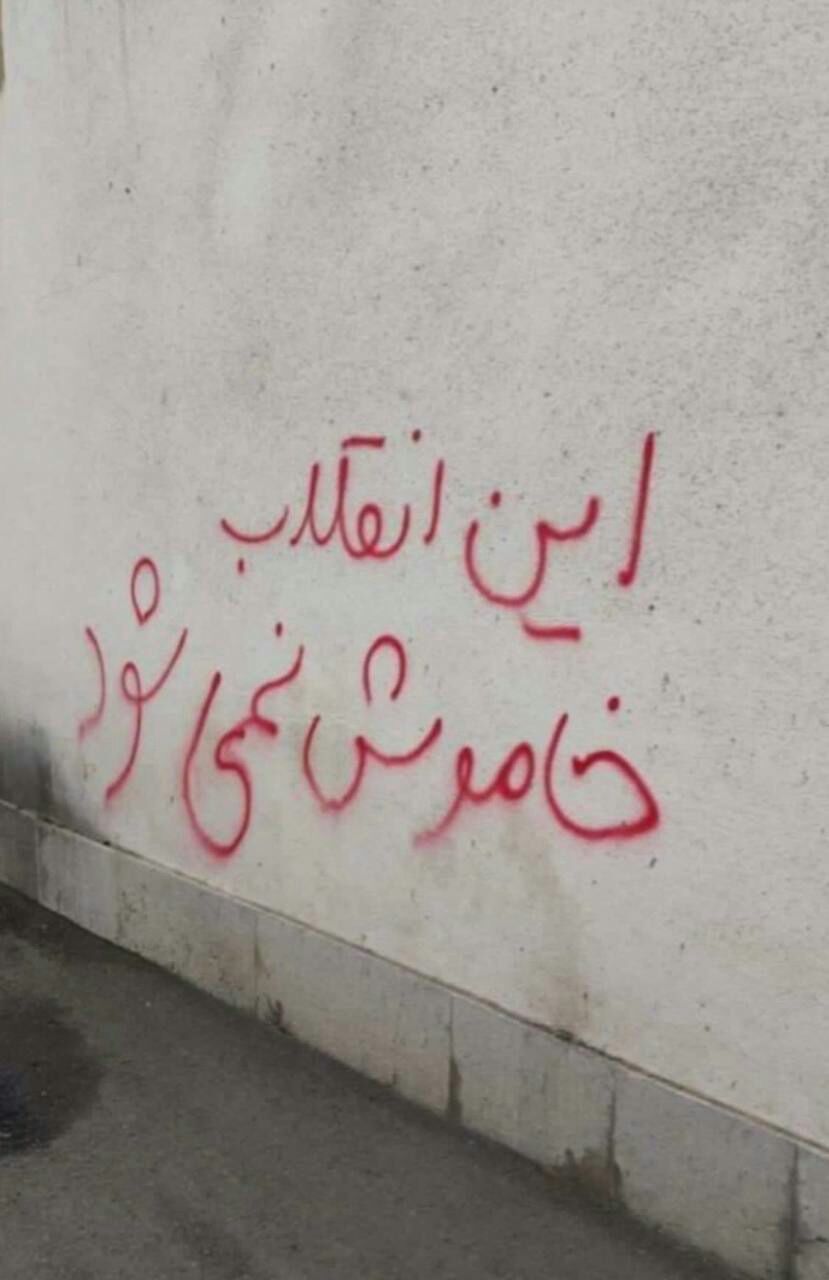 این انقلاب
خاموش نمی شود